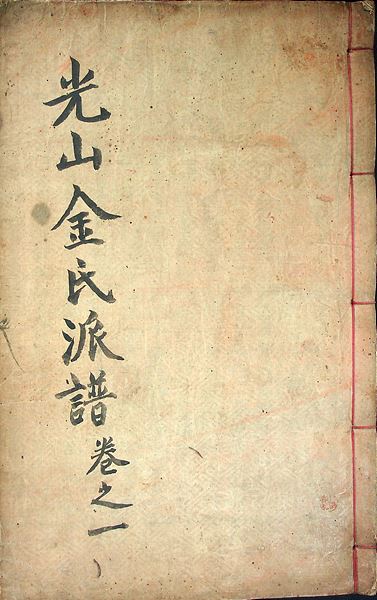 光山金氏派譜卷之一